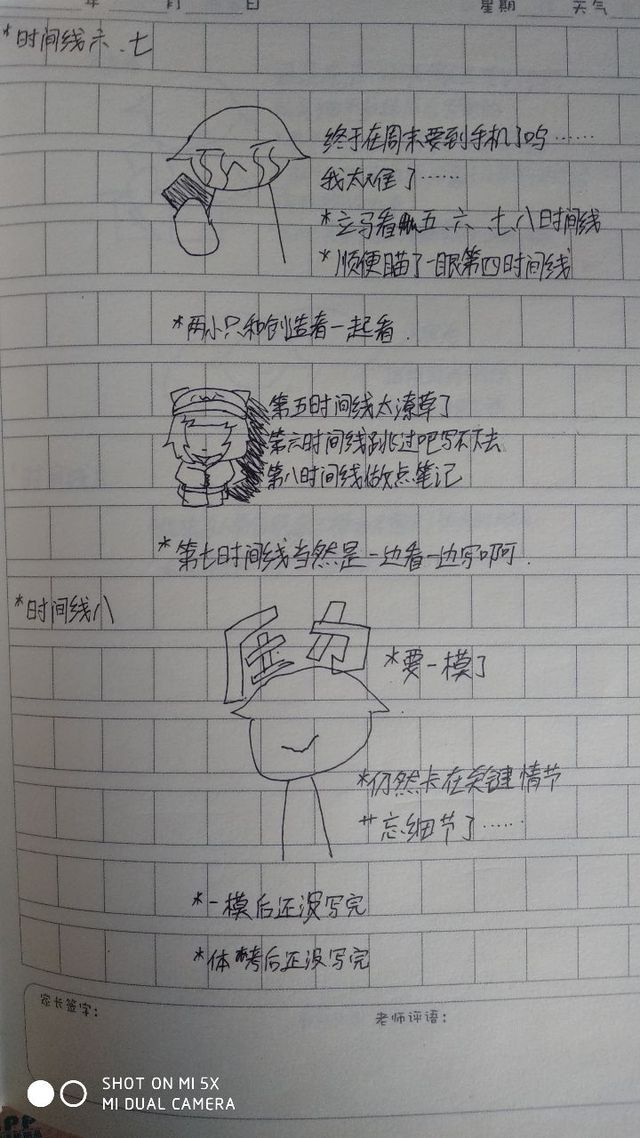 年 月 日 星期 天气
*时间线六、七
终于在周末要到手机了呜……
我太难了……
*立马看五、六、七、八时间线
*顺便瞄了一眼第四时间线
*两小只和创造者一起看.
第五时间线太潦草了
第六时间线跳过吧写不下去
第八时间线做点笔记
*第七时间线当然是一边看一边写啊啊.
*时间线八
压力
*要一模了
*仍然卡在关键情节
*忘细节了……
*一模后还没写完
*体考后还没写完
家长签字:
老师评语:
SHOT ON MI 5X
MI DUAL CAMERA